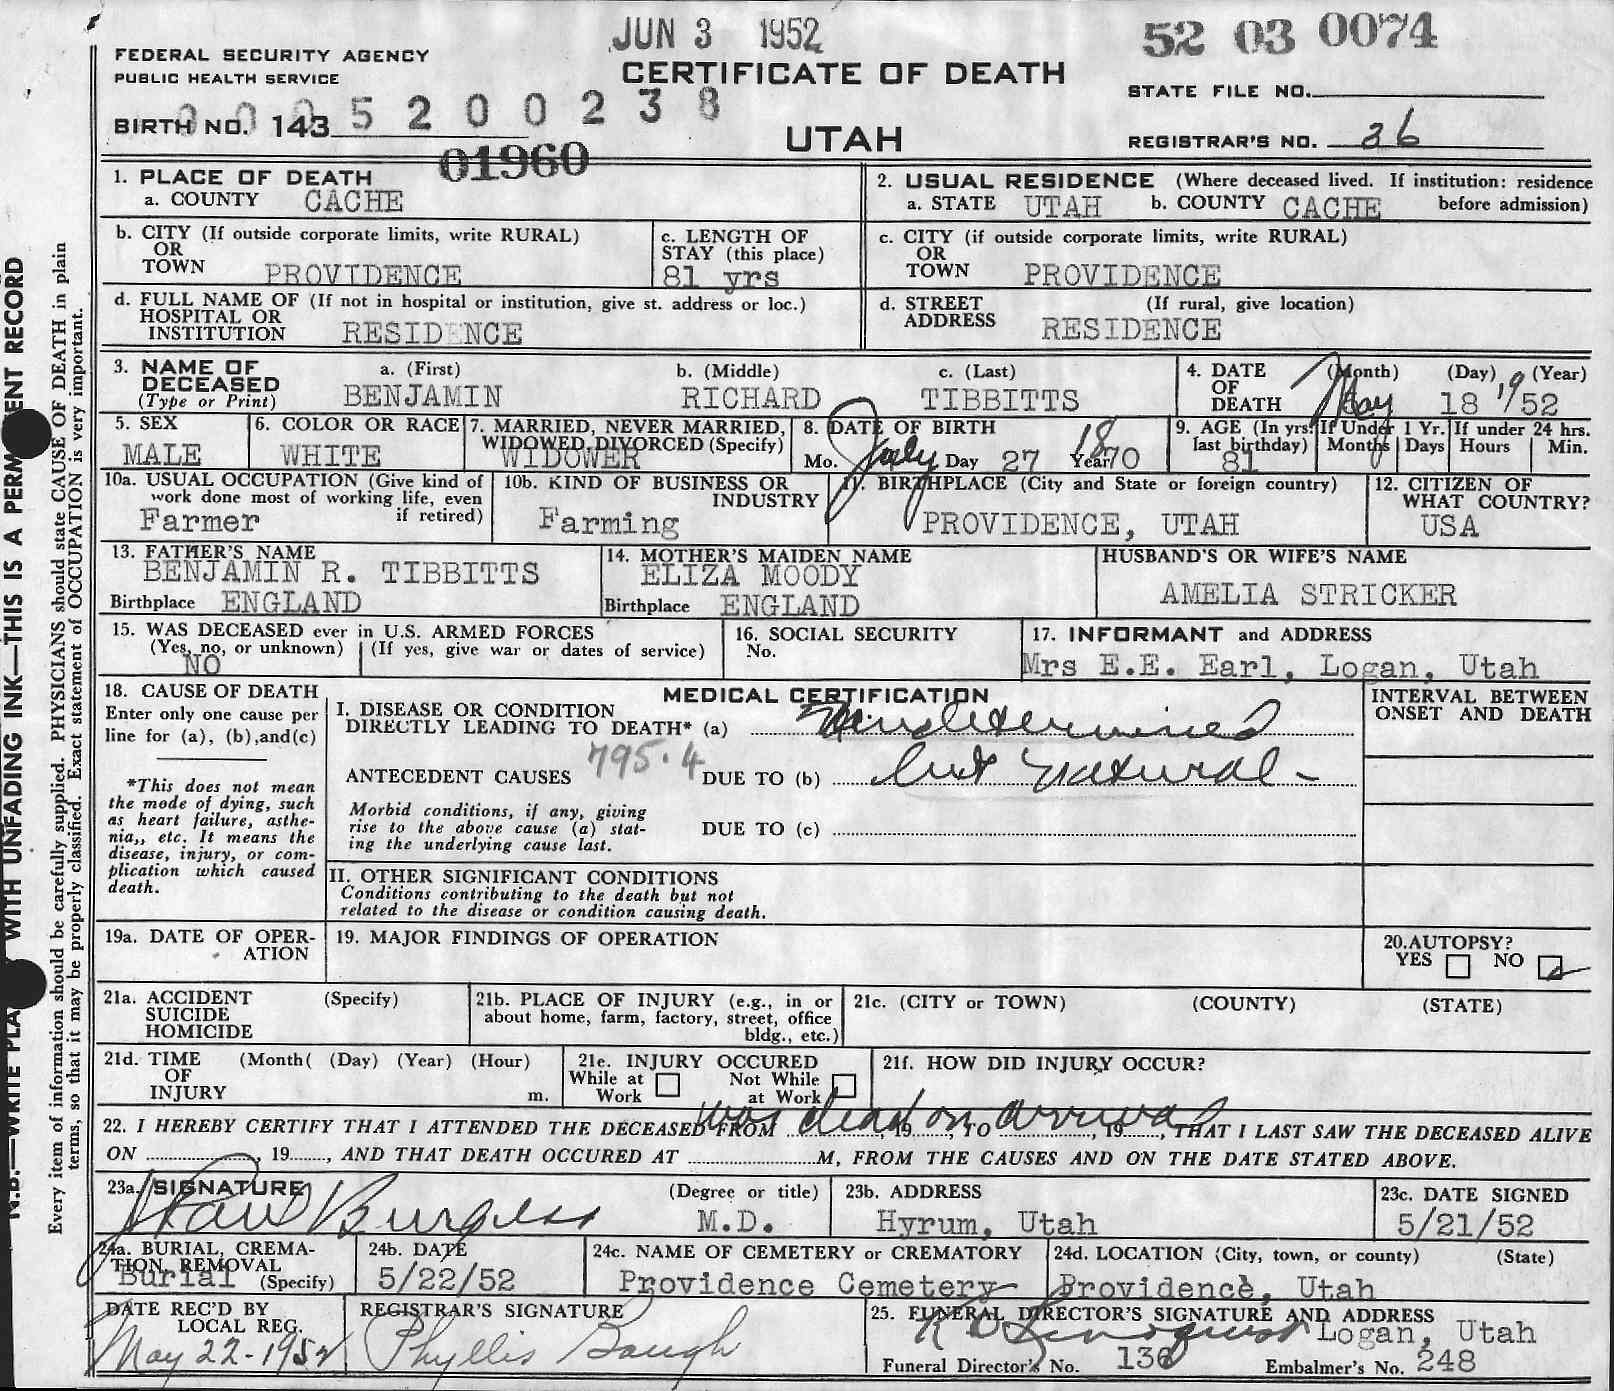 JUN 3 1952
52 03 0074
FEDERAL SECURITY AGENCY
PUBLIC HEALTH SERVICE
CERTIFICATE OF DEATH
STATE FILE NO.
BIRTH NO. 143 5 2 0 0 2 3 8
UTAH
REGISTRAR'S NO. 36
01960
1. PLACE OF DEATH
a. COUNTY CACHE
2. USUAL RESIDENCE (Where deceased lived. If institution: residence before admission)
a. STATE UTAH b. COUNTY CACHE
b. CITY (If outside corporate limits, write RURAL)
OR
TOWN PROVIDENCE
c. LENGTH OF
STAY (this place)
81 yrs
c. CITY (if outside corporate limits, write RURAL)
OR
TOWN PROVIDENCE
d. FULL NAME OF (If not in hospital or institution, give st. address or loc.)
HOSPITAL OR
INSTITUTION RESIDENCE
d. STREET (If rural, give location)
ADDRESS RESIDENCE
3. NAME OF DECEASED
(Type or Print)
a. (First) b. (Middle) c. (Last)
BENJAMIN RICHARD TIBBITTS
4. DATE OF DEATH (Month) (Day) (Year)
May 18 19/52
5. SEX
MALE
6. COLOR OR RACE
WHITE
7. MARRIED, NEVER MARRIED,
WIDOWED, DIVORCED (Specify)
WIDOWER
8. DATE OF BIRTH
Mo. July Day 27 Year 1870
9. AGE (In yrs. last birthday)
81
If Under 1 Yr.
Months Days
If under 24 hrs.
Hours Min.
10a. USUAL OCCUPATION (Give kind of
work done most of working life, even
if retired)
Farmer
10b. KIND OF BUSINESS OR
INDUSTRY
Farming
11. BIRTHPLACE (City and State or foreign country)
PROVIDENCE, UTAH
12. CITIZEN OF
WHAT COUNTRY?
USA
13. FATHER'S NAME
BENJAMIN R. TIBBITTS
Birthplace ENGLAND
14. MOTHER'S MAIDEN NAME
ELIZA MOODY
Birthplace ENGLAND
HUSBAND'S OR WIFE'S NAME
AMELIA STRICKER
15. WAS DECEASED ever in U.S. ARMED FORCES
(Yes, no, or unknown) (If yes, give war or dates of service)
NO
16. SOCIAL SECURITY
No.
17. INFORMANT and ADDRESS
Mrs E.E. Earl, Logan, Utah
18. CAUSE OF DEATH
Enter only one cause per
line for (a), (b),and(c)
*This does not mean
the mode of dying, such
as heart failure, asthe-
nia,, etc. It means the
disease, injury, or com-
plication which caused
death.
MEDICAL CERTIFICATION
I. DISEASE OR CONDITION
DIRECTLY LEADING TO DEATH* (a) Undetermined
795.4
ANTECEDENT CAUSES DUE TO (b) but natural -
Morbid conditions, if any, giving
rise to the above cause (a) stat-
ing the underlying cause last.
DUE TO (c)
INTERVAL BETWEEN
ONSET AND DEATH
II. OTHER SIGNIFICANT CONDITIONS
Conditions contributing to the death but not
related to the disease or condition causing death.
19a. DATE OF OPER-
ATION
19. MAJOR FINDINGS OF OPERATION
20.AUTOPSY?
YES NO
21a. ACCIDENT (Specify)
SUICIDE
HOMICIDE
21b. PLACE OF INJURY (e.g., in or
about home, farm, factory, street, office
bldg., etc.)
21c. (CITY or TOWN) (COUNTY) (STATE)
21d. TIME (Month( (Day) (Year) (Hour)
OF
INJURY m.
21e. INJURY OCCURED
While at Work
Not While at Work
21f. HOW DID INJURY OCCUR?
was dead on arrival
22. I HEREBY CERTIFY THAT I ATTENDED THE DECEASED FROM , 19 , TO , 19 , THAT I LAST SAW THE DECEASED ALIVE
ON , 19 , AND THAT DEATH OCCURED AT M, FROM THE CAUSES AND ON THE DATE STATED ABOVE.
23a. SIGNATURE (Degree or title)
Burgess M.D.
23b. ADDRESS
Hyrum, Utah
23c. DATE SIGNED
5/21/52
24a. BURIAL, CREMA-
TION, REMOVAL
Burial (Specify)
24b. DATE
5/22/52
24c. NAME OF CEMETERY or CREMATORY
Providence Cemetery
24d. LOCATION (City, town, or county) (State)
Providence, Utah
DATE REC'D BY
LOCAL REG.
May 22-1952
REGISTRAR'S SIGNATURE
Phyllis Baugh
25. FUNERAL DIRECTOR'S SIGNATURE AND ADDRESS
Logan, Utah
Funeral Director's No. 136 Embalmer's No. 248
Every item of information should be carefully supplied. PHYSICIANS should state CAUSE OF DEATH in plain
terms, so that it may be properly classified. Exact statement of OCCUPATION is very important.
N.B.—WRITE PLA WITH UNFADING INK—THIS IS A PERM ENT RECORD